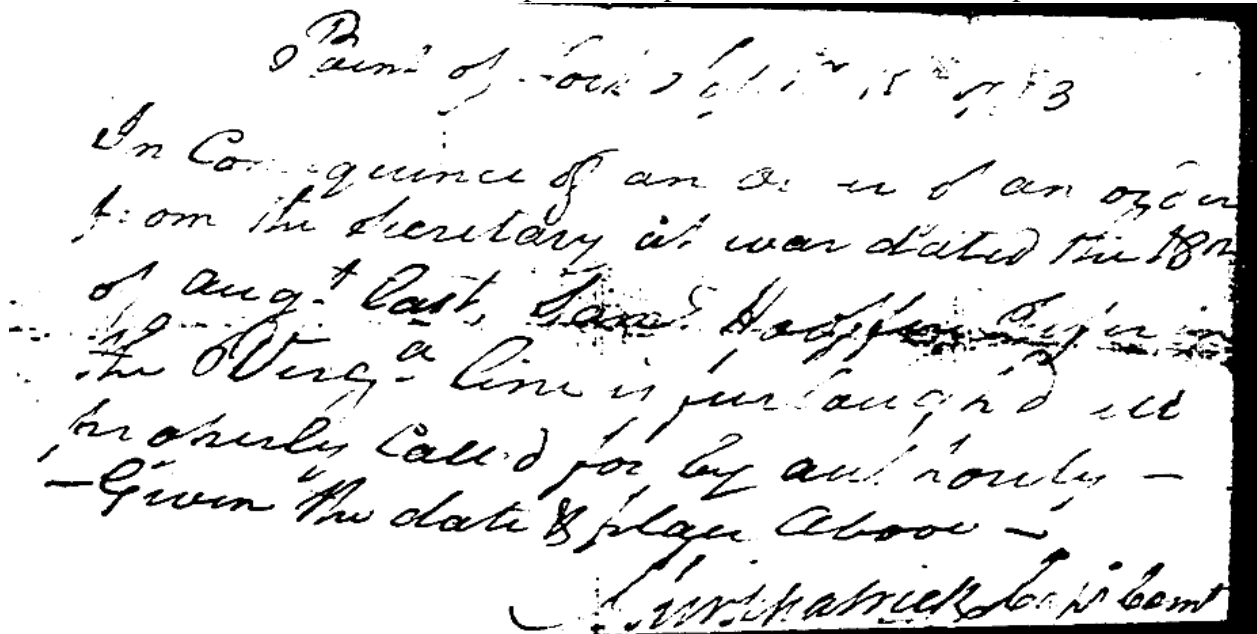 Point of fork Sept.r 15th 1783
In Consequince of an of an order
from the Secretary at war dated the 18th
of augt. last, Hoof fifer in
the Virga. line is furlough'd
properly Call'd for by authority —
— Given the date & place Above —
Kirkpatrick Capt Comt